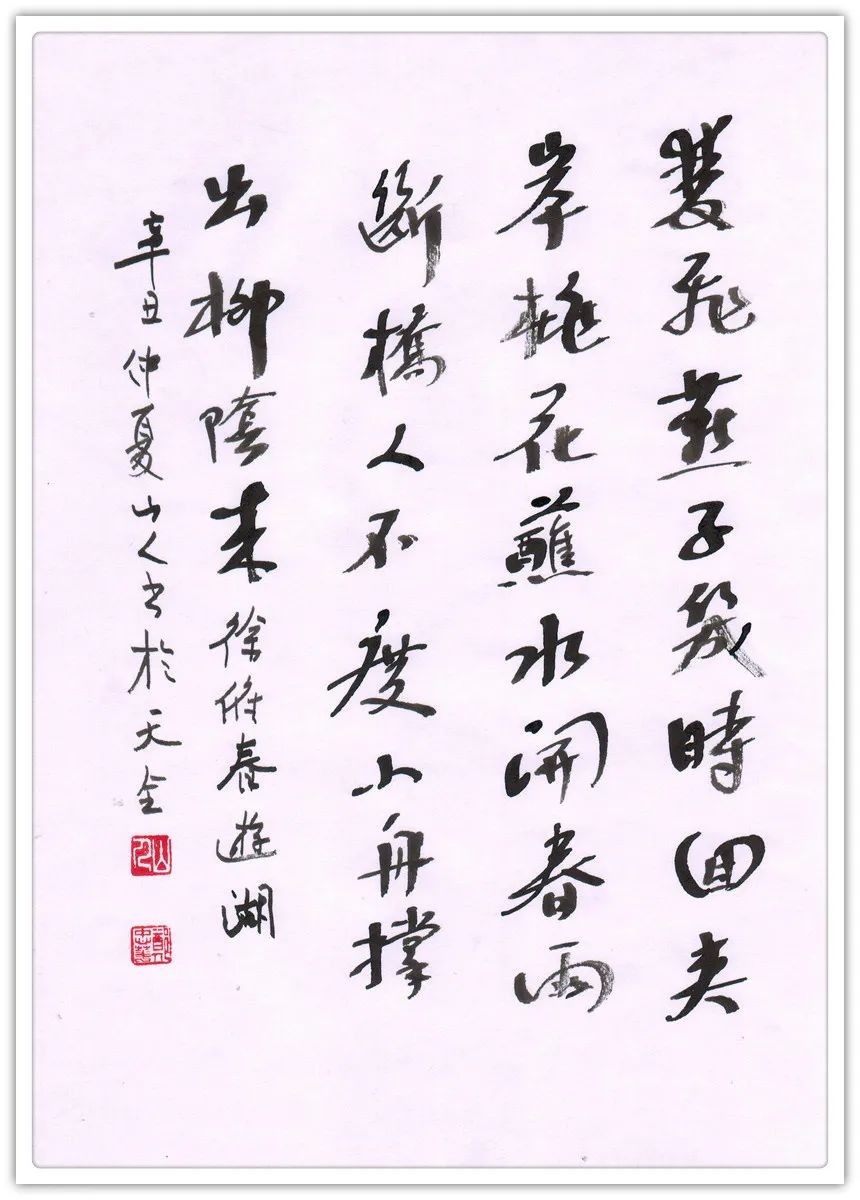 雙飛燕子幾時回夾
岸桃花蘸水開春雨
斷橋人不度小舟撐
出柳陰來徐俯春遊湖
辛丑仲夏山人書於天全
山人